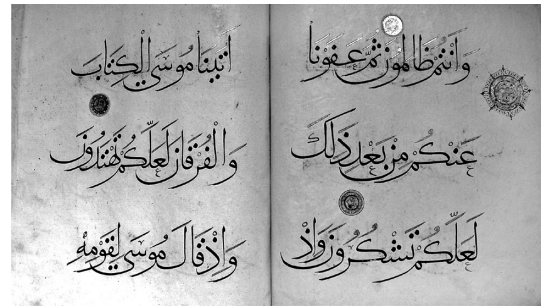 وَأَنْتُمْ ظَالِمُونَ ثُمَّ عَفَوْنَا
عَنْكُمْ مِنْ بَعْدِ ذَلِكَ
لَعَلَّكُمْ تَشْكُرُونَ وَإِذْ
آتَيْنَا مُوسَى الْكِتَابَ
وَالْفُرْقَانَ لَعَلَّكُمْ تَهْتَدُونَ
وَإِذْ قَالَ مُوسَى لِقَوْمِهِ